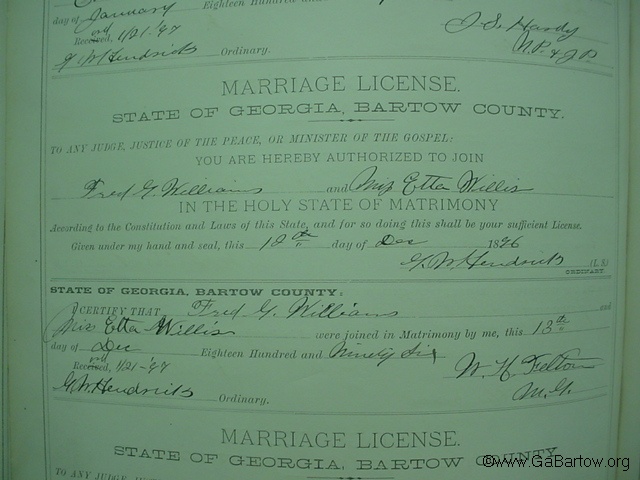 day of January Eighteen Hundred
Received, 1/21-'97 J. S. Hardy
G W Hendricks Ordinary. N. P. & J P
MARRIAGE LICENSE.
STATE OF GEORGIA, BARTOW COUNTY.
TO ANY JUDGE, JUSTICE OF THE PEACE, OR MINISTER OF THE GOSPEL:
YOU ARE HEREBY AUTHORIZED TO JOIN
Fred G. Williams and Miss Etta Willis
IN THE HOLY STATE OF MATRIMONY
According to the Constitution and Laws of this State, and for so doing this shall be your sufficient License.
Given under my hand and seal, this 12th day of Dec 1896
G. W. Hendricks (L.S.)
ORDINARY.
STATE OF GEORGIA, BARTOW COUNTY:
I CERTIFY THAT Fred G. Williams and
Miss Etta Willis were joined in Matrimony by me, this 13th
day of Dec Eighteen Hundred and Ninety Six
Received, 1/21-'97 W. H. Felton
G. W. Hendricks Ordinary. M. G.
MARRIAGE LICENSE.
STATE OF GEORGIA, BARTOW COUNTY.
©www.GaBartow.org
TO ANY JUDGE,